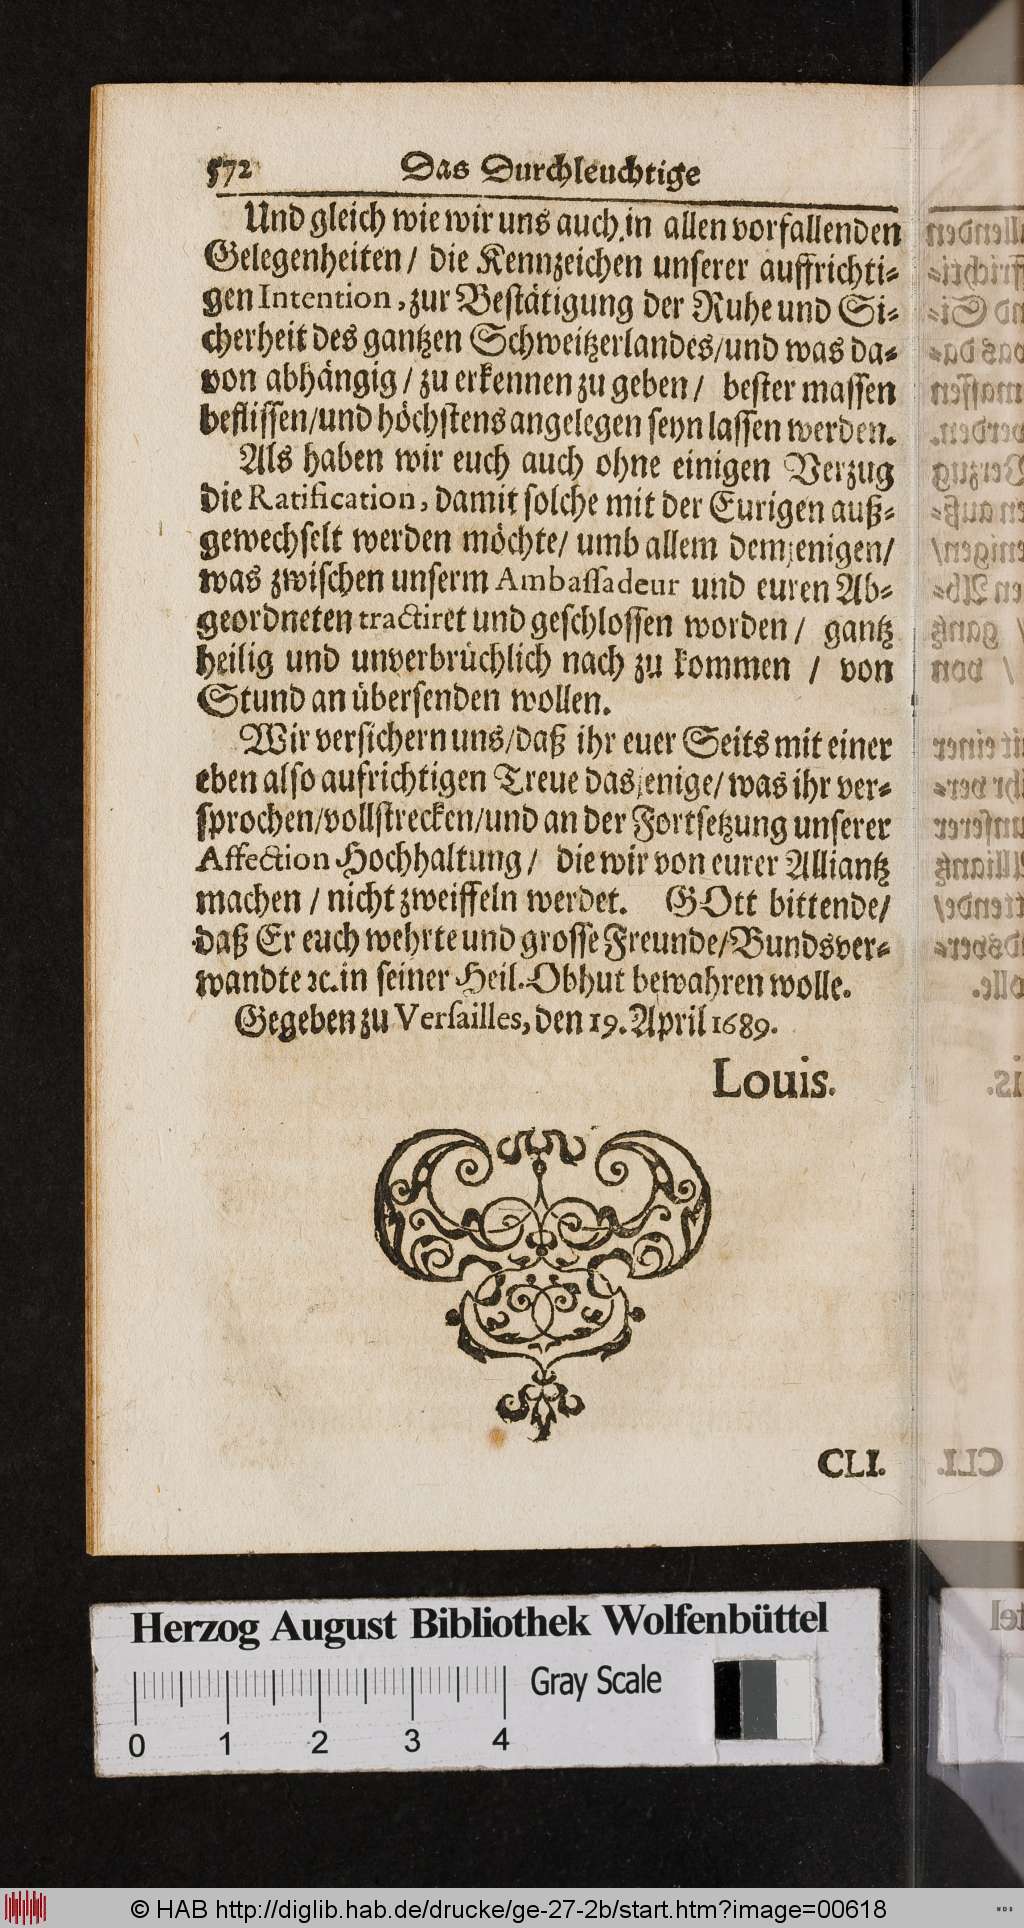 572 Das Durchleuchtige
Und gleich wie wir uns auch in allen vorfallenden
Gelegenheiten / die Kennzeichen unserer auffrichti-
gen Intention, zur Bestätigung der Ruhe und Si-
cherheit des gantzen Schweitzerlandes/und was da-
von abhängig / zu erkennen zu geben / bester massen
beflissen/und höchstens angelegen seyn lassen werden.
Als haben wir euch auch ohne einigen Verzug
die Ratification, damit solche mit der Eurigen auß-
gewechselt werden möchte/ umb allem demjenigen/
was zwischen unserm Ambassadeur und euren Ab-
geordneten tractiret und geschlossen worden / gantz
heilig und unverbrüchlich nach zu kommen / von
Stund an übersenden wollen.
Wir versichern uns/daß ihr euer Seits mit einer
eben also aufrichtigen Treue dasjenige/ was ihr ver-
sprochen/vollstrecken/und an der Fortsetzung unserer
Affection Hochhaltung / die wir von eurer Alliantz
machen / nicht zweiffeln werdet. GOtt bittende/
daß Er euch wehrte und grosse Freunde/Bundsver-
wandte ꝛc. in seiner Heil. Obhut bewahren wolle.
Gegeben zu Versailles, den 19. April 1689.
Louis.
CLI.
Herzog August Bibliothek Wolfenbüttel
Gray Scale
0 1 2 3 4
© HAB http://diglib.hab.de/drucke/ge-27-2b/start.htm?image=00618